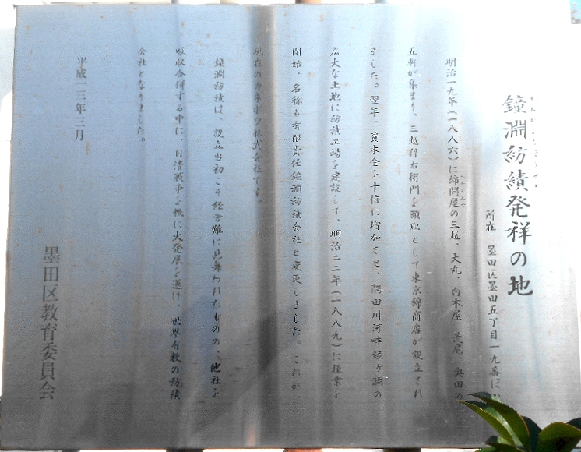 鐘淵紡績発祥の地
所在 墨田区墨田五丁目一九番
明治一九年(一八八六)に綿問屋の三越、大丸、白木屋、荒尾、奥田の
五軒が集まり、三越得右衛門を頭取として東京綿商店が設立され
ました。翌年、資本金を十倍に増加させ、隅田川河畔
広大な土地に紡績工場を建設して、明治二二年(一八八九)に操業を
開始、名称も有限責任鐘淵紡績会社と変更しました。これが
現在の 株式会社です。
鐘淵紡績は、設立当初こそ経営難に見舞われたものの、他社を
吸収合併する中に、日清戦争を機に大発展を遂げ、世界有数の紡績
会社となりました。
平成一三年三月
墨田区教育委員会